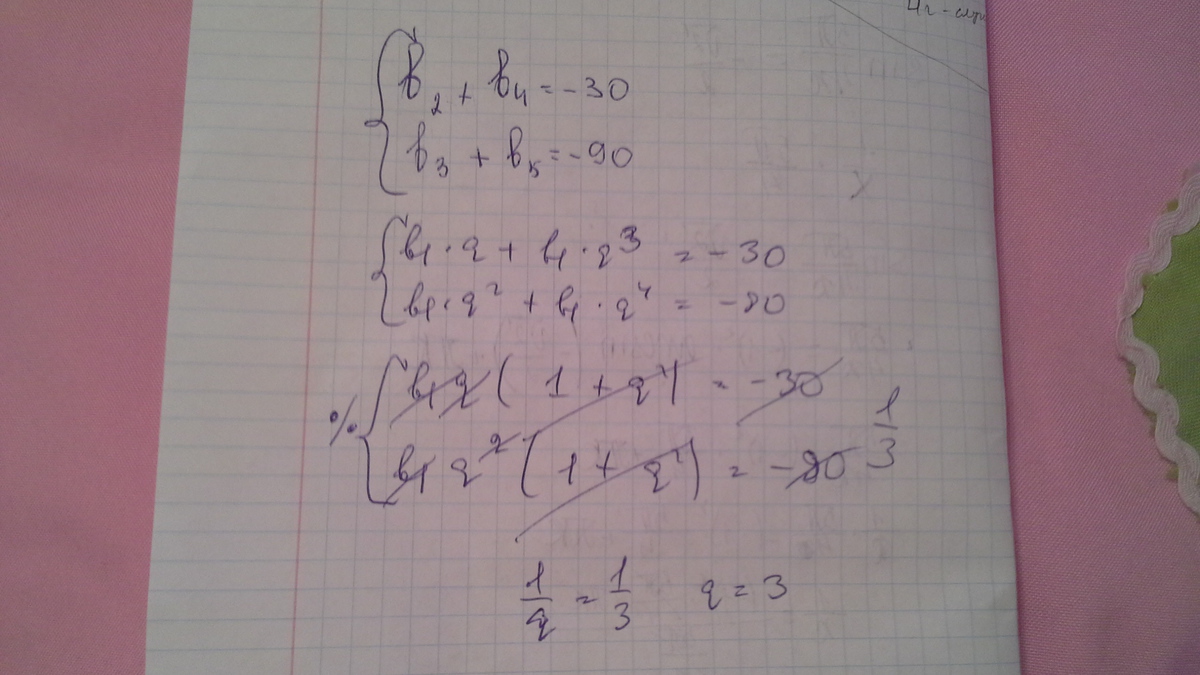 { b₂ + b₄ = -30
b₃ + b₅ = -90
{ b₁ · q + b₁ · q³ = -30
b₁ · q² + b₁ · q⁴ = -90
% { b₁ q ( 1 + q²) = -30
b₁ q² ( 1 + q²) = -90 1/3
1/q = 1/3 q = 3